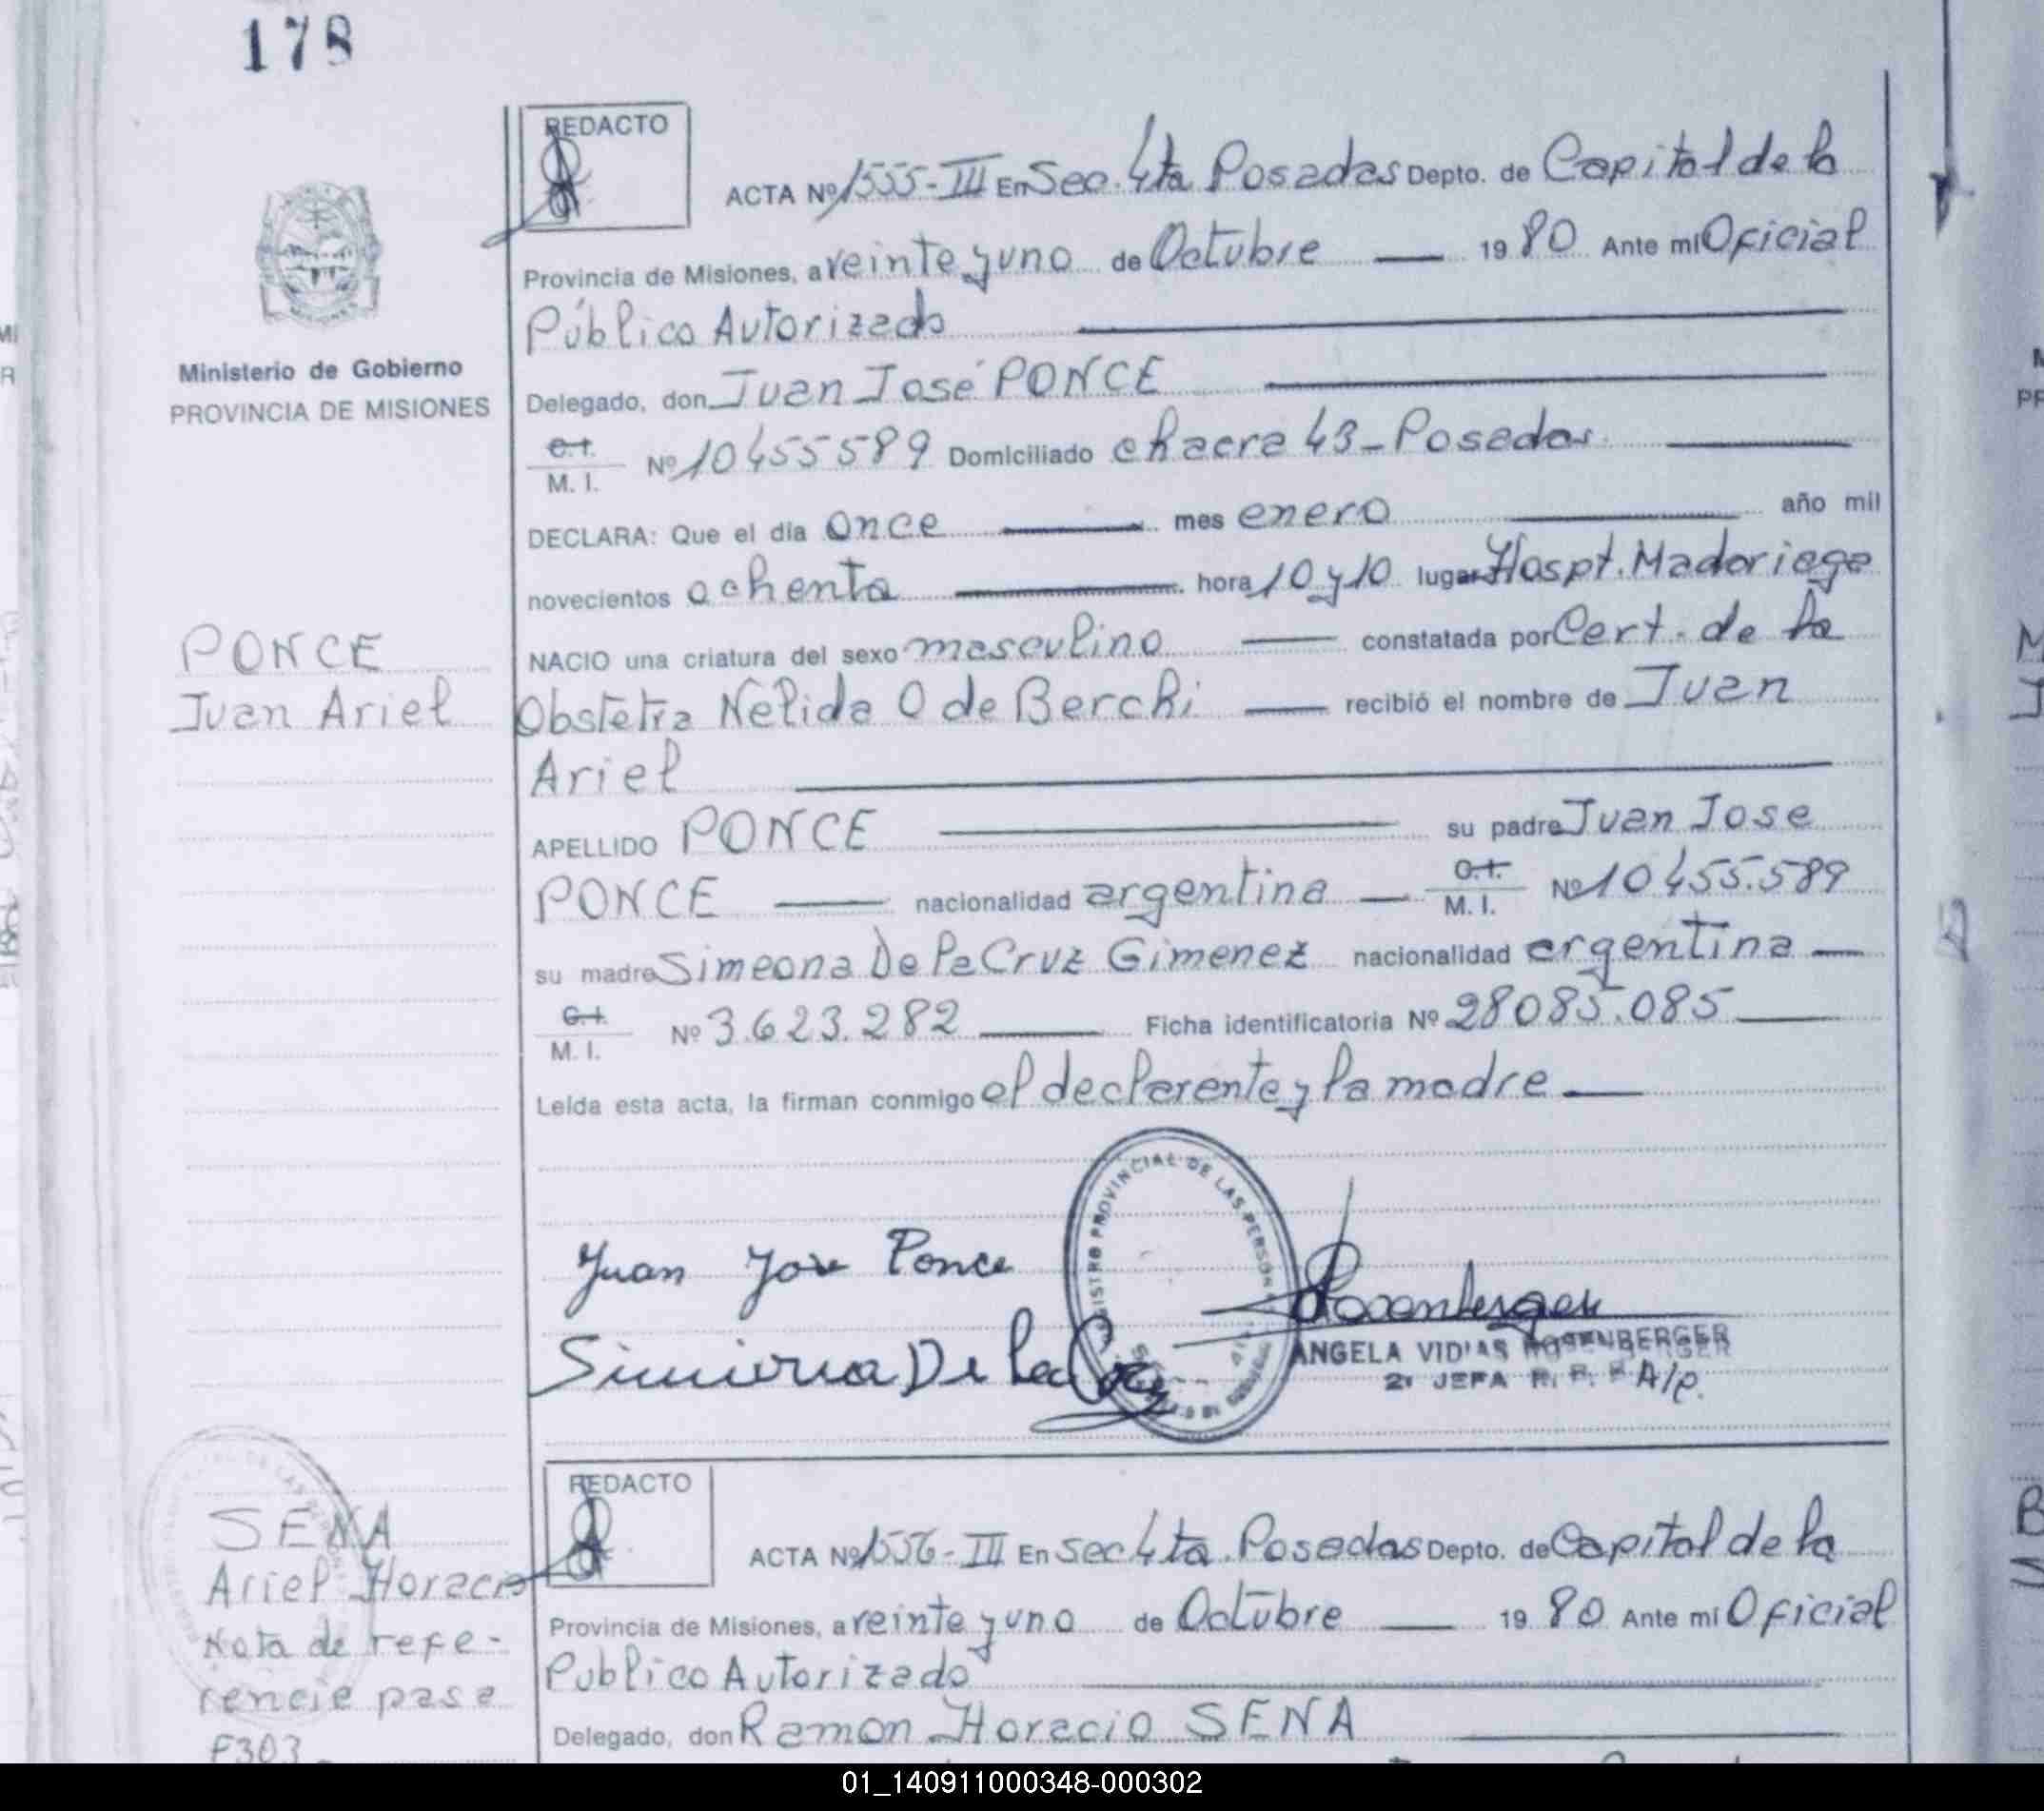 178
REDACTO
ACTA Nº 1555-III En Sec. 4ta Posadas Depto. de Capital de la
Provincia de Misiones, a veinte y uno de Octubre 1980 Ante mí Oficial
Público Autorizado
Ministerio de Gobierno
PROVINCIA DE MISIONES
Delegado, don Juan José PONCE
C.I.
M. I. Nº 10455589 Domiciliado chacra 43-Posadas
DECLARA: Que el día once mes enero año mil
novecientos ochenta hora 10 y 10 lugar Hospt. Madariaga
PONCE
Juan Ariel
NACIO una criatura del sexo masculino constatada por Cert. de la
Obstetra Nélida O de Berchi recibió el nombre de Juan
Ariel
APELLIDO PONCE su padre Juan Jose
PONCE nacionalidad argentina C.I. M. I. Nº 10455.589
su madre Simeona De la Cruz Gimenez nacionalidad argentina
C.I.
M. I. Nº 3.623.282 Ficha identificatoria Nº 28085.085
Leída esta acta, la firman conmigo el declarente y la madre
REGISTRO PROVINCIAL DE LAS PERSONAS
Juan Jose Ponce
Rosenberger
De la Cruz
ANGELA VIDIAS ROSENBERGER
2ª JEFA R. P. P. A/c.
SENA
Ariel Horacio
Nota de refe-
rencia pasa
F303
REDACTO
ACTA Nº 1556-III En Sec 4ta. Posadas Depto. de Capital de la
Provincia de Misiones, a veinte y uno de Octubre 1980 Ante mí Oficial
Publico Autorizado
Delegado, don Ramon Horacio SENA
01_140911000348-000302